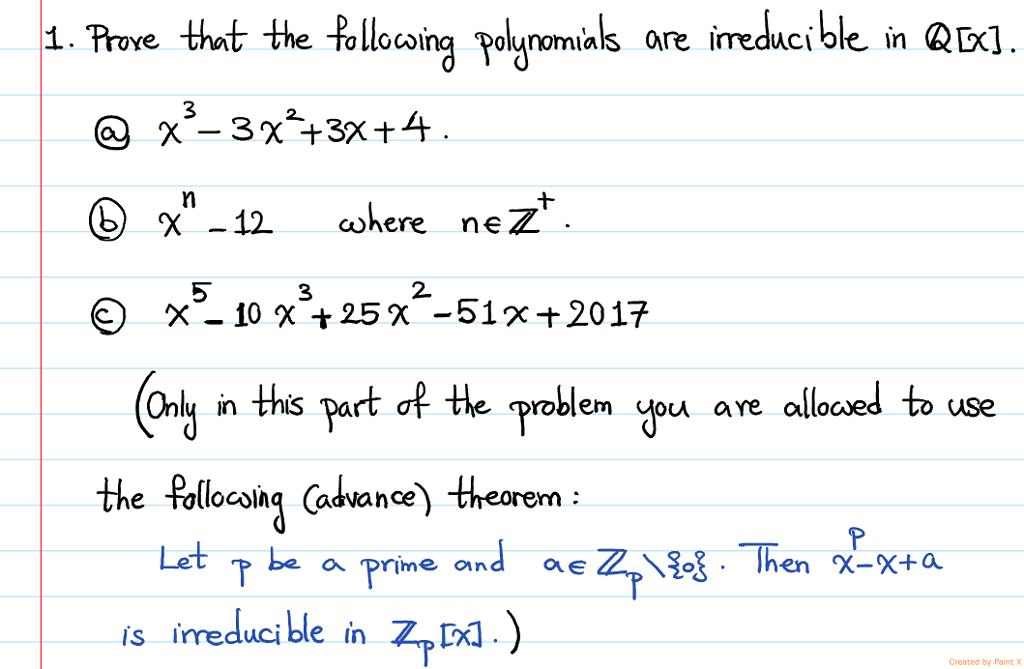 1. Prove that the following polynomials are irreducible in ℚ[x].
ⓐ x³ – 3x² + 3x + 4 .
ⓑ xⁿ – 12 where n ∈ ℤ⁺ .
ⓒ x⁵ – 10 x³ + 25 x² – 51x + 2017
(Only in this part of the problem you are allowed to use
the following (advance) theorem :
Let p be a prime and a ∈ ℤₚ \ {0} . Then xᵖ – x + a
is irreducible in ℤₚ[x] . )
Created by Paint X